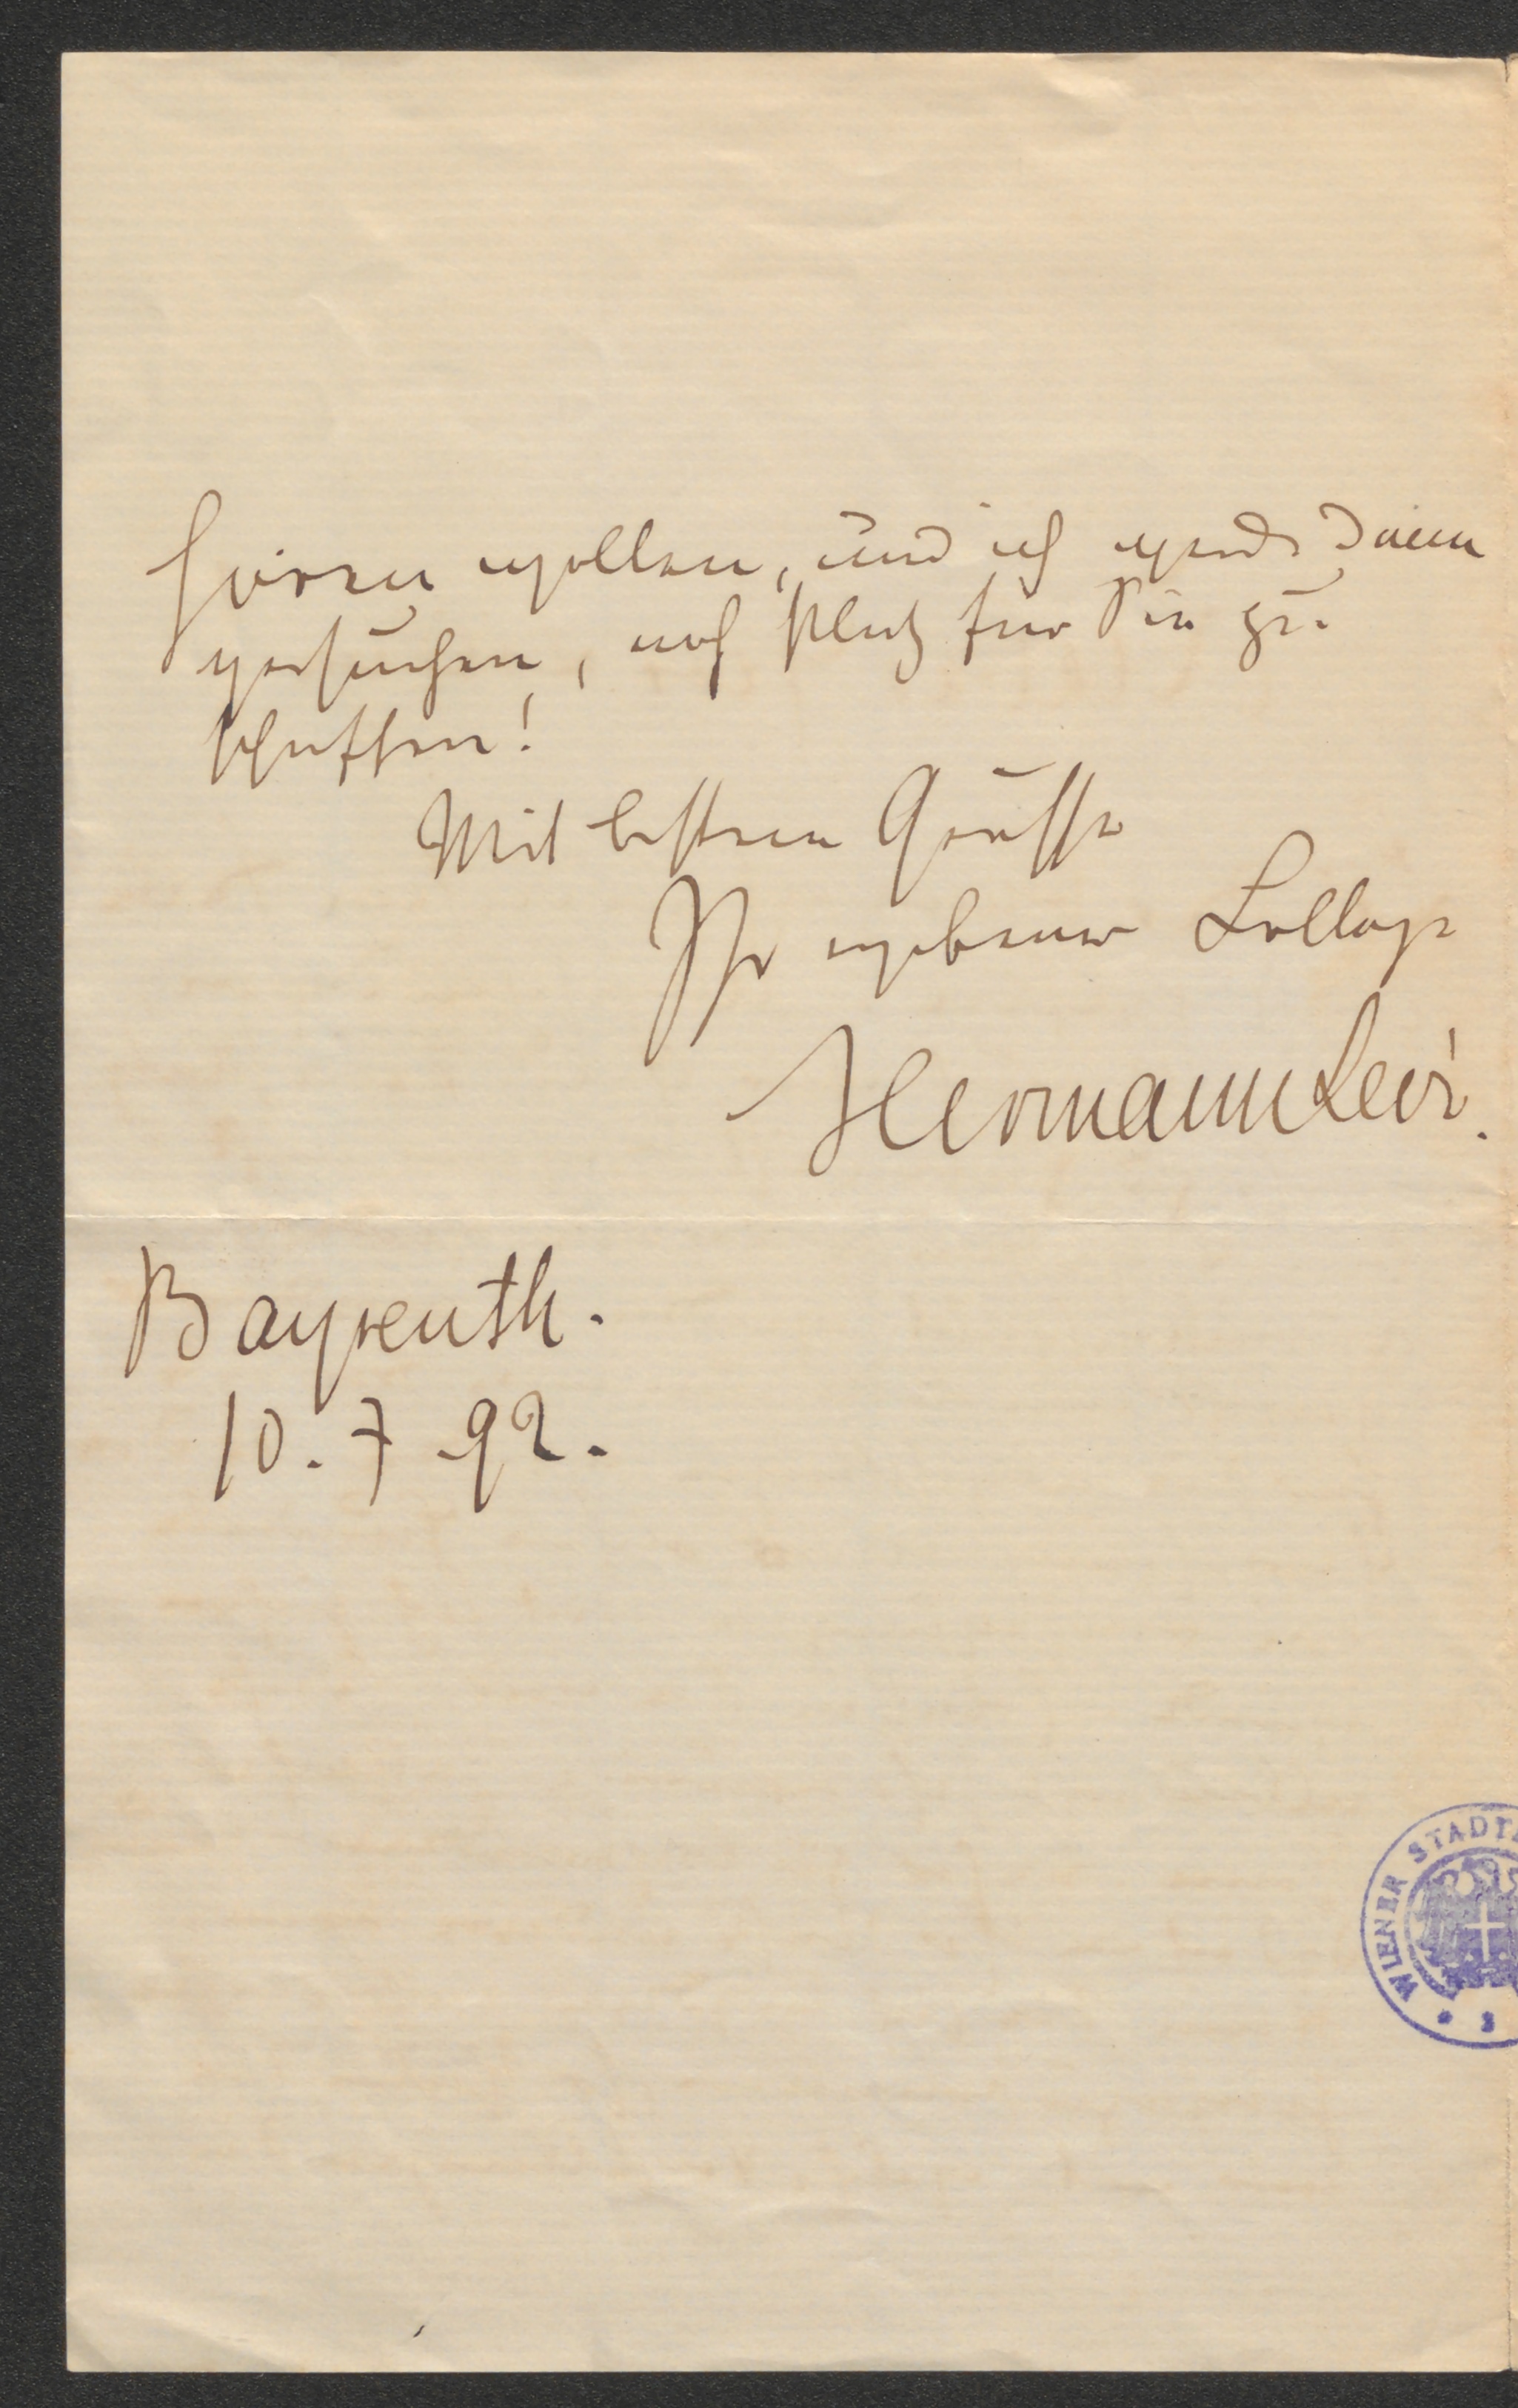 hören wollen, und ich werde dann
versuchen, noch Platz für Sie zu
schaffen!
Mit bestem Grusse
Ihr ergebener College
Hermann Levi.
Bayreuth.
10. 7 92.
WIENER STADT